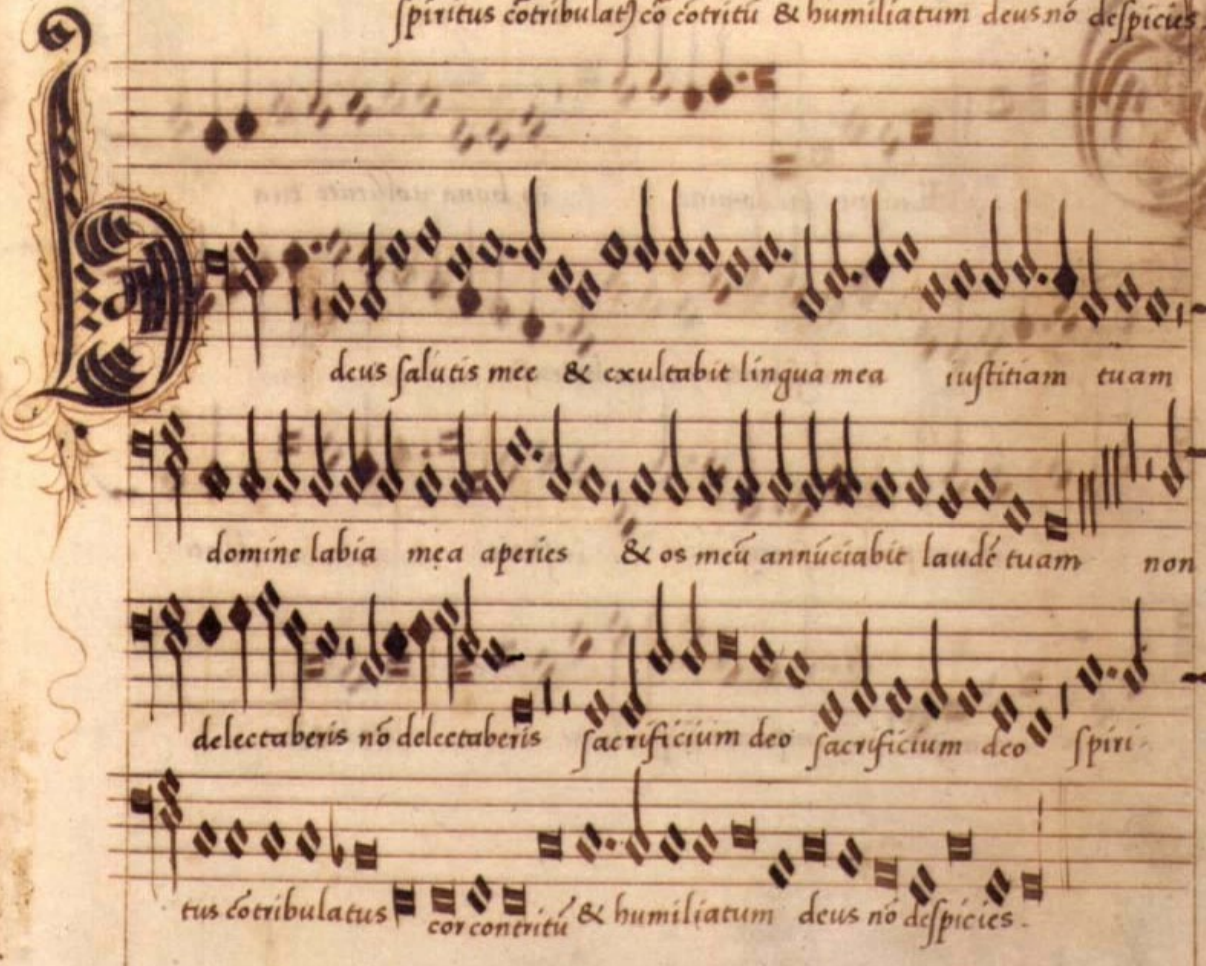 spiritus cōtribulat⁹ cō cōtritū & humiliatum deus nō despicies.
deus salutis mee & exultabit lingua mea iustitiam tuam
domine labia mea aperies & os meū annūciabit laudē tuam non
delectaberis nō delectaberis sacrificium deo sacrificium deo spiri-
tus cōtribulatus cor contritū & humiliatum deus nō despicies.